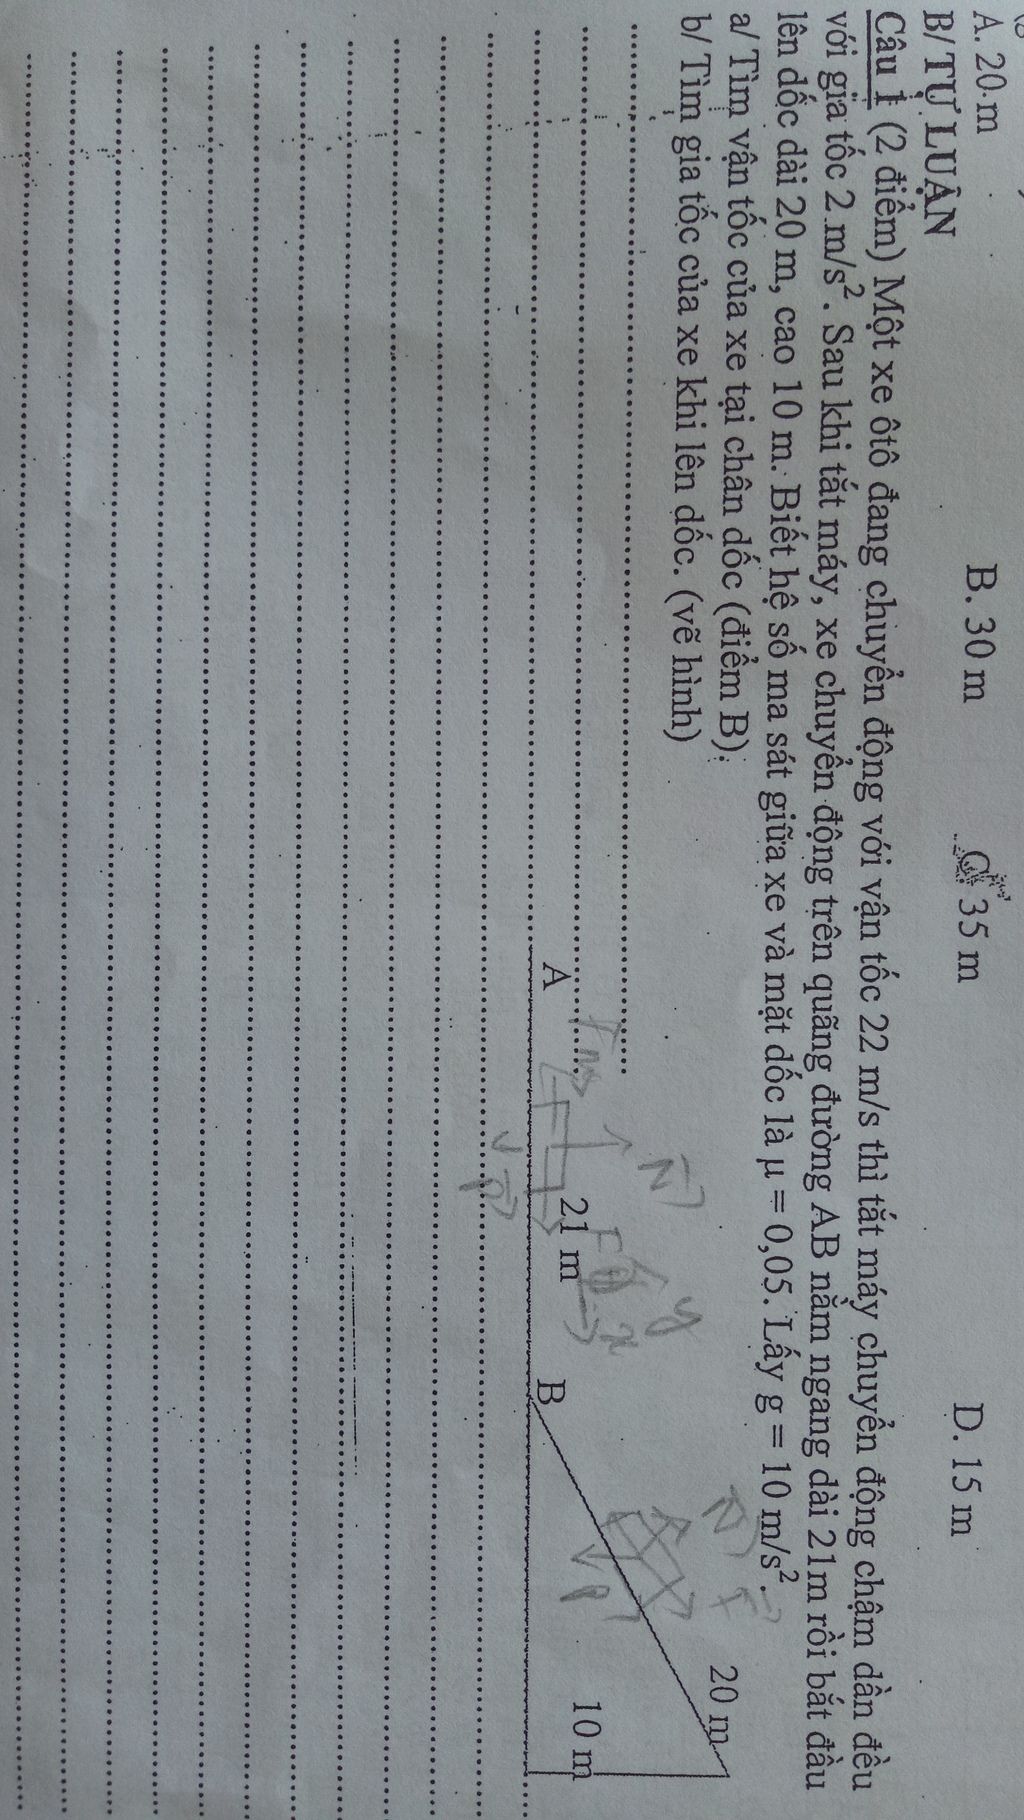 A. 20 m B. 30 m C. 35 m D. 15 m
B/ TỰ LUẬN
Câu 1 (2 điểm) Một xe ôtô đang chuyển động với vận tốc 22 m/s thì tắt máy chuyển động chậm dần đều
với gia tốc 2 m/s². Sau khi tắt máy, xe chuyển động trên quãng đường AB nằm ngang dài 21m rồi bắt đầu
lên dốc dài 20 m, cao 10 m. Biết hệ số ma sát giữa xe và mặt dốc là μ = 0,05. Lấy g = 10 m/s².
a/ Tìm vận tốc của xe tại chân dốc (điểm B).
b/ Tìm gia tốc của xe khi lên dốc. (vẽ hình)
N
y
x
F
P
N
F
P
20 m
10 m
A
21 m
B